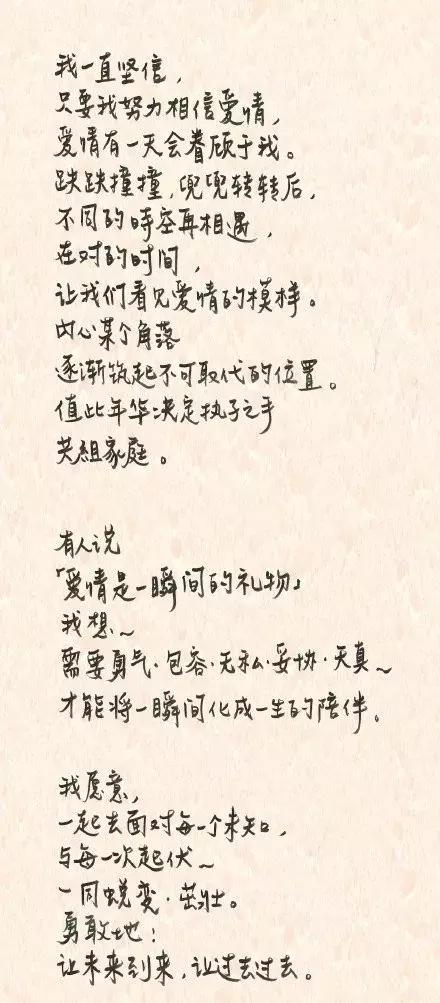 我一直坚信，
只要我努力相信爱情，
爱情有一天会眷顾于我。
跌跌撞撞，兜兜转转后，
不同的時空再相遇，
在对的时间，
让我们看见爱情的模样。
内心某个角落
逐渐筑起不可取代的位置。
值此年华决定执子之手
共組家庭。
有人说
「爱情是一瞬间的礼物」
我想~
需要勇气·包容·无私·妥协·天真~
才能将一瞬间化成一生的陪伴。
我愿意，
一起去面对每一个未知，
与每一次起伏~
一同蜕变·茁壮。
勇敢地：
让未来到来，让过去过去。